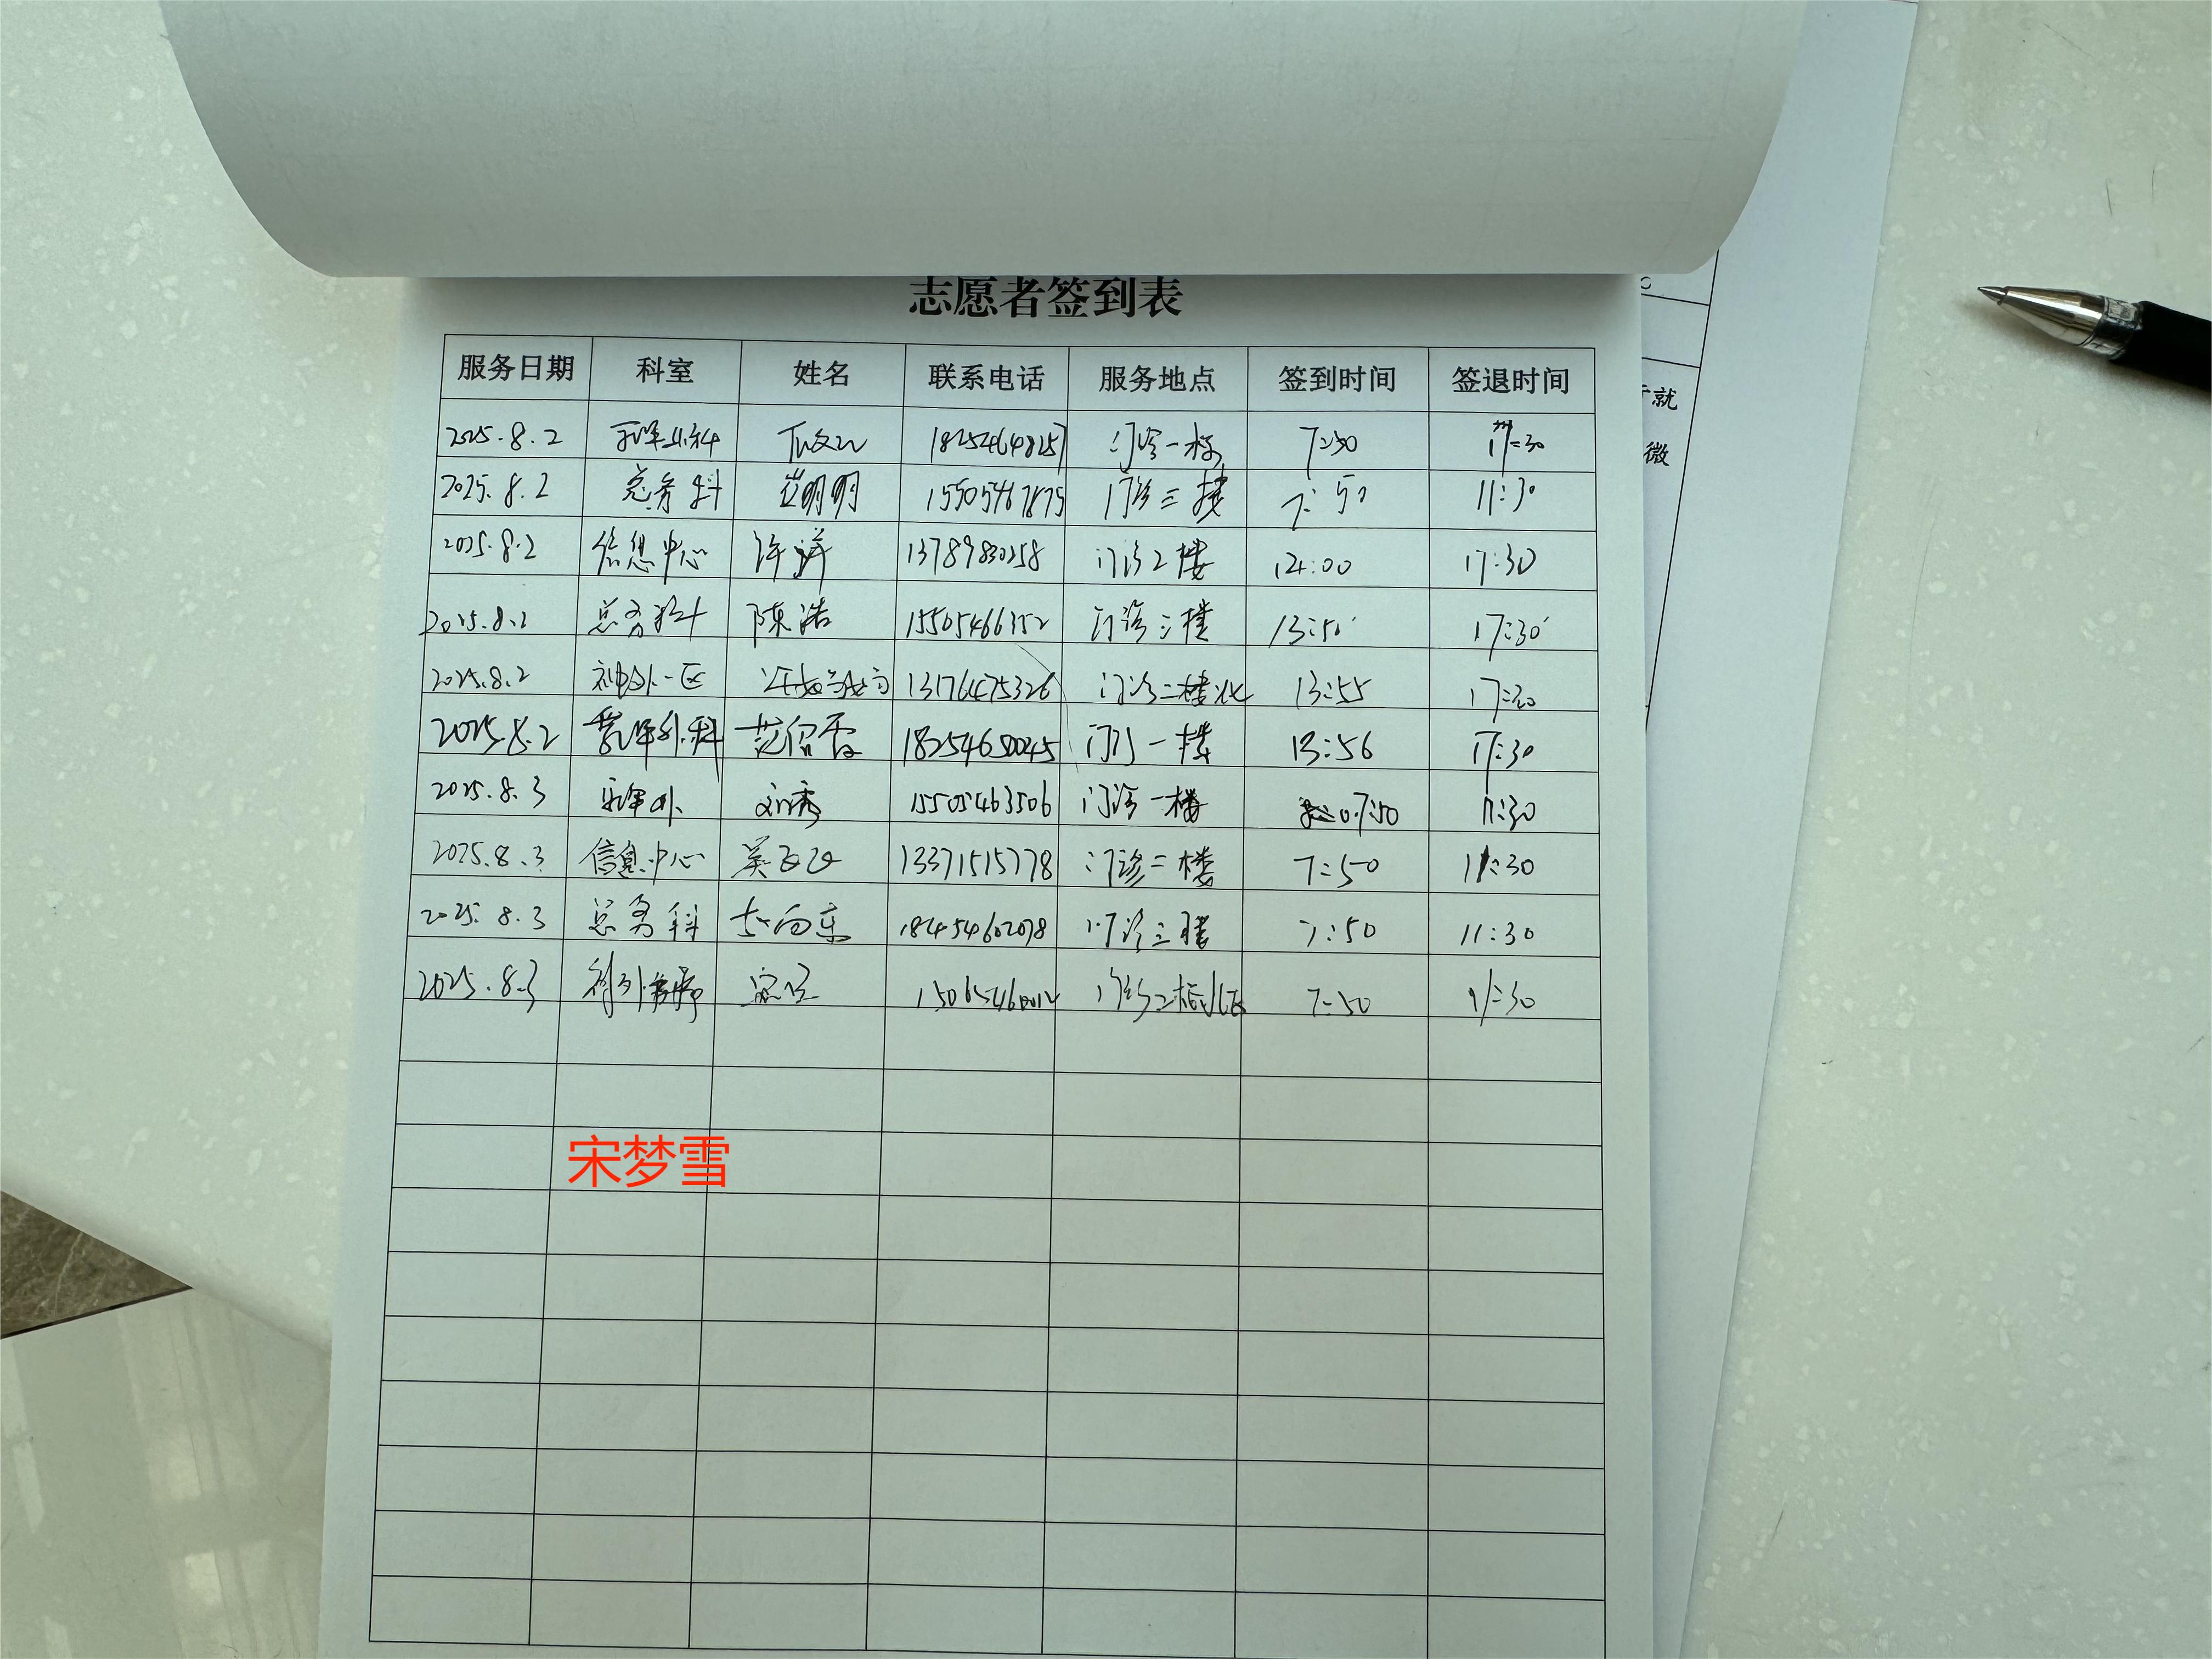 志愿者签到表
服务日期 科室 姓名 联系电话 服务地点 签到时间 签退时间
2025.8.2 18254648257 门诊一楼 7:50 17:30
2025.8.2 总务科 崔明明 15505467875 门诊三楼 7:50 11:30
2025.8.2 信息中心 许洋 13789830258 门诊2楼 14:00 17:30
2025.8.2 总务科 陈浩 15505466352 门诊三楼 13:50 17:30
2025.8.2 神外一区 13176475326 门诊二楼北 13:55 17:30
2025.8.2 乳甲外科 范佃香 18254650045 门诊一楼 13:56 17:30
2025.8.3 乳甲外 刘秀 15505463506 门诊一楼 7:50 11:30
2025.8.3 信息中心 吴 13371515778 门诊二楼 7:50 11:30
2025.8.3 总务科 向东 18454602078 门诊三楼 7:50 11:30
2025.8.3 7:50 11:30
宋梦雪
就
微